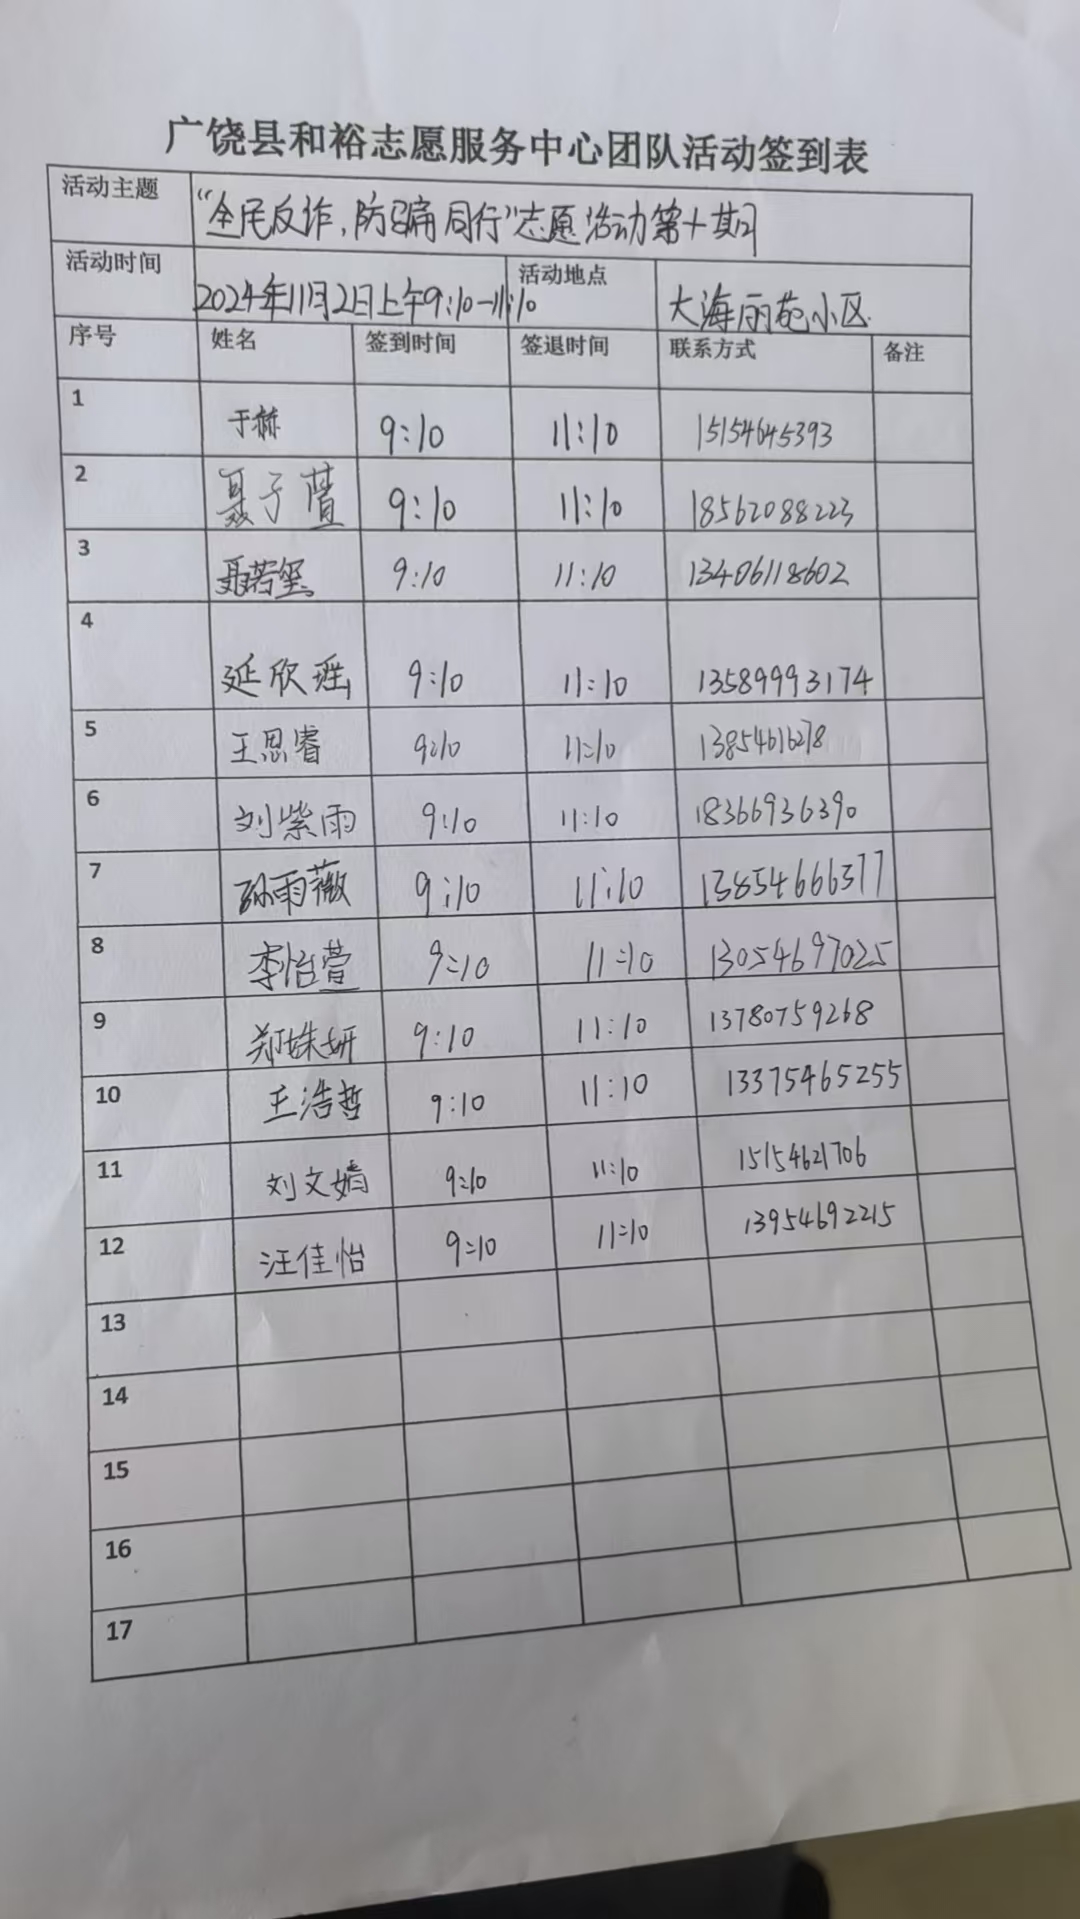 广饶县和裕志愿服务中心团队活动签到表
活动主题 “全民反诈,防骗同行”志愿活动第十期
活动时间 2024年11月2日上午9:10-11:10 活动地点 大海丽苑小区
序号 姓名 签到时间 签退时间 联系方式 备注
1 于赫 9:10 11:10 15154645393
2 聂子萱 9:10 11:10 18562088223
3 聂若玺 9:10 11:10 13406118602
4 延欣瑶 9:10 11:10 13589993174
5 王思睿 9:10 11:10 13854616278
6 刘紫雨 9:10 11:10 18366936390
7 孙雨薇 9:10 11:10 13854666377
8 李怡萱 9:10 11:10 13054697025
9 郑姝妍 9:10 11:10 13780759268
10 王浩哲 9:10 11:10 13375465255
11 刘文嫣 9:10 11:10 15154621706
12 汪佳怡 9:10 11:10 13954692215
13
14
15
16
17